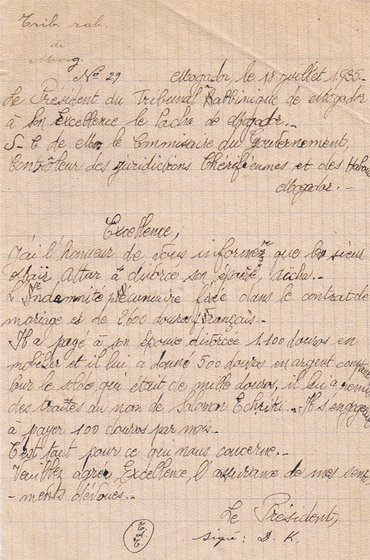 Trib. rab.
de
Mog.
No 29 Mogador, le 18 juillet 1935_
Le Président du Tribunal Rabbinique de Mogador
à Son Excellence le Pacha de Mogador._
S- C. de Mr. le Commissaire du Gouvernement,
Contrôleur des Juridictions Chérifiennes et des Habous
Mogador._
Excellence,
J'ai l'honneur de vous informer que le sieur
Attar a divorcé son épouse Aicha._
L'Indemnité pécuniaire fixée dans le contrat de
mariage es de 2600 douros Français._
Il a payé à son épouse divorcée 1.100 douros en
mobilier et il lui a donné 500 douros en argent comptant
Pour le stoc qui était de mille douros, il lui a remis
des traites au nom de Salomon Echriki._ Il s'engage
à payer 100 douros par mois._
C'est tout pour ce qui nous concerne._
Veuillez agréer, Excellence, l'assurance de mes senti-
ments dévoués._
Le Président,
signé: D. K.